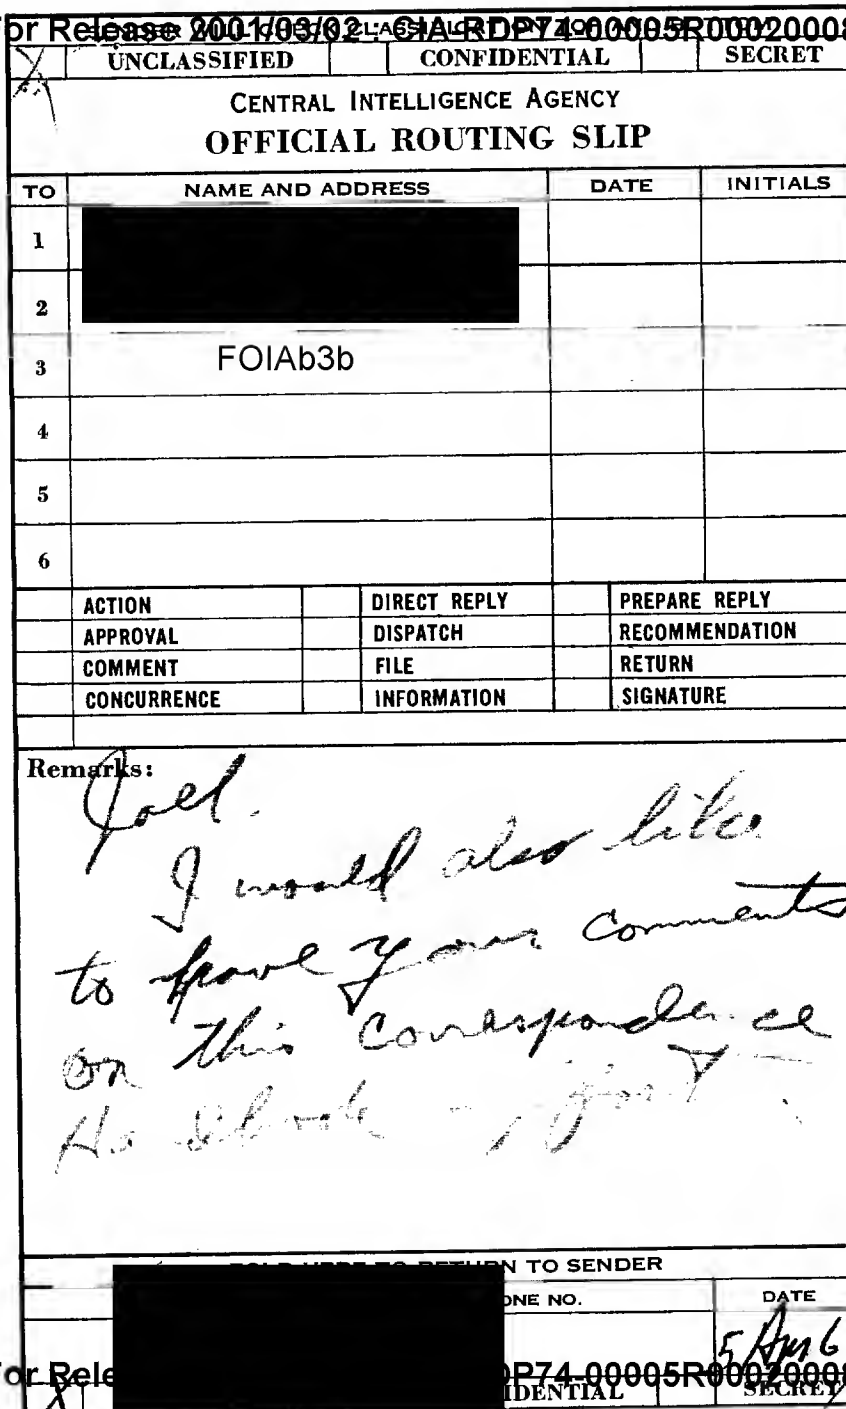 or Release 2001/03/02 : CIA-RDP74-00005R00020008
UNCLASSIFIED CONFIDENTIAL SECRET
CENTRAL INTELLIGENCE AGENCY
OFFICIAL ROUTING SLIP
TO NAME AND ADDRESS DATE INITIALS
1
2
3 FOIAb3b
4
5
6
ACTION DIRECT REPLY PREPARE REPLY
APPROVAL DISPATCH RECOMMENDATION
COMMENT FILE RETURN
CONCURRENCE INFORMATION SIGNATURE
Remarks:
I would also like
to have your comments
on this correspondence
TO RETURN TO SENDER
ONE NO. DATE
5 Apr 6
or Rele DP74-00005R00020008
IDENTIAL SECRET